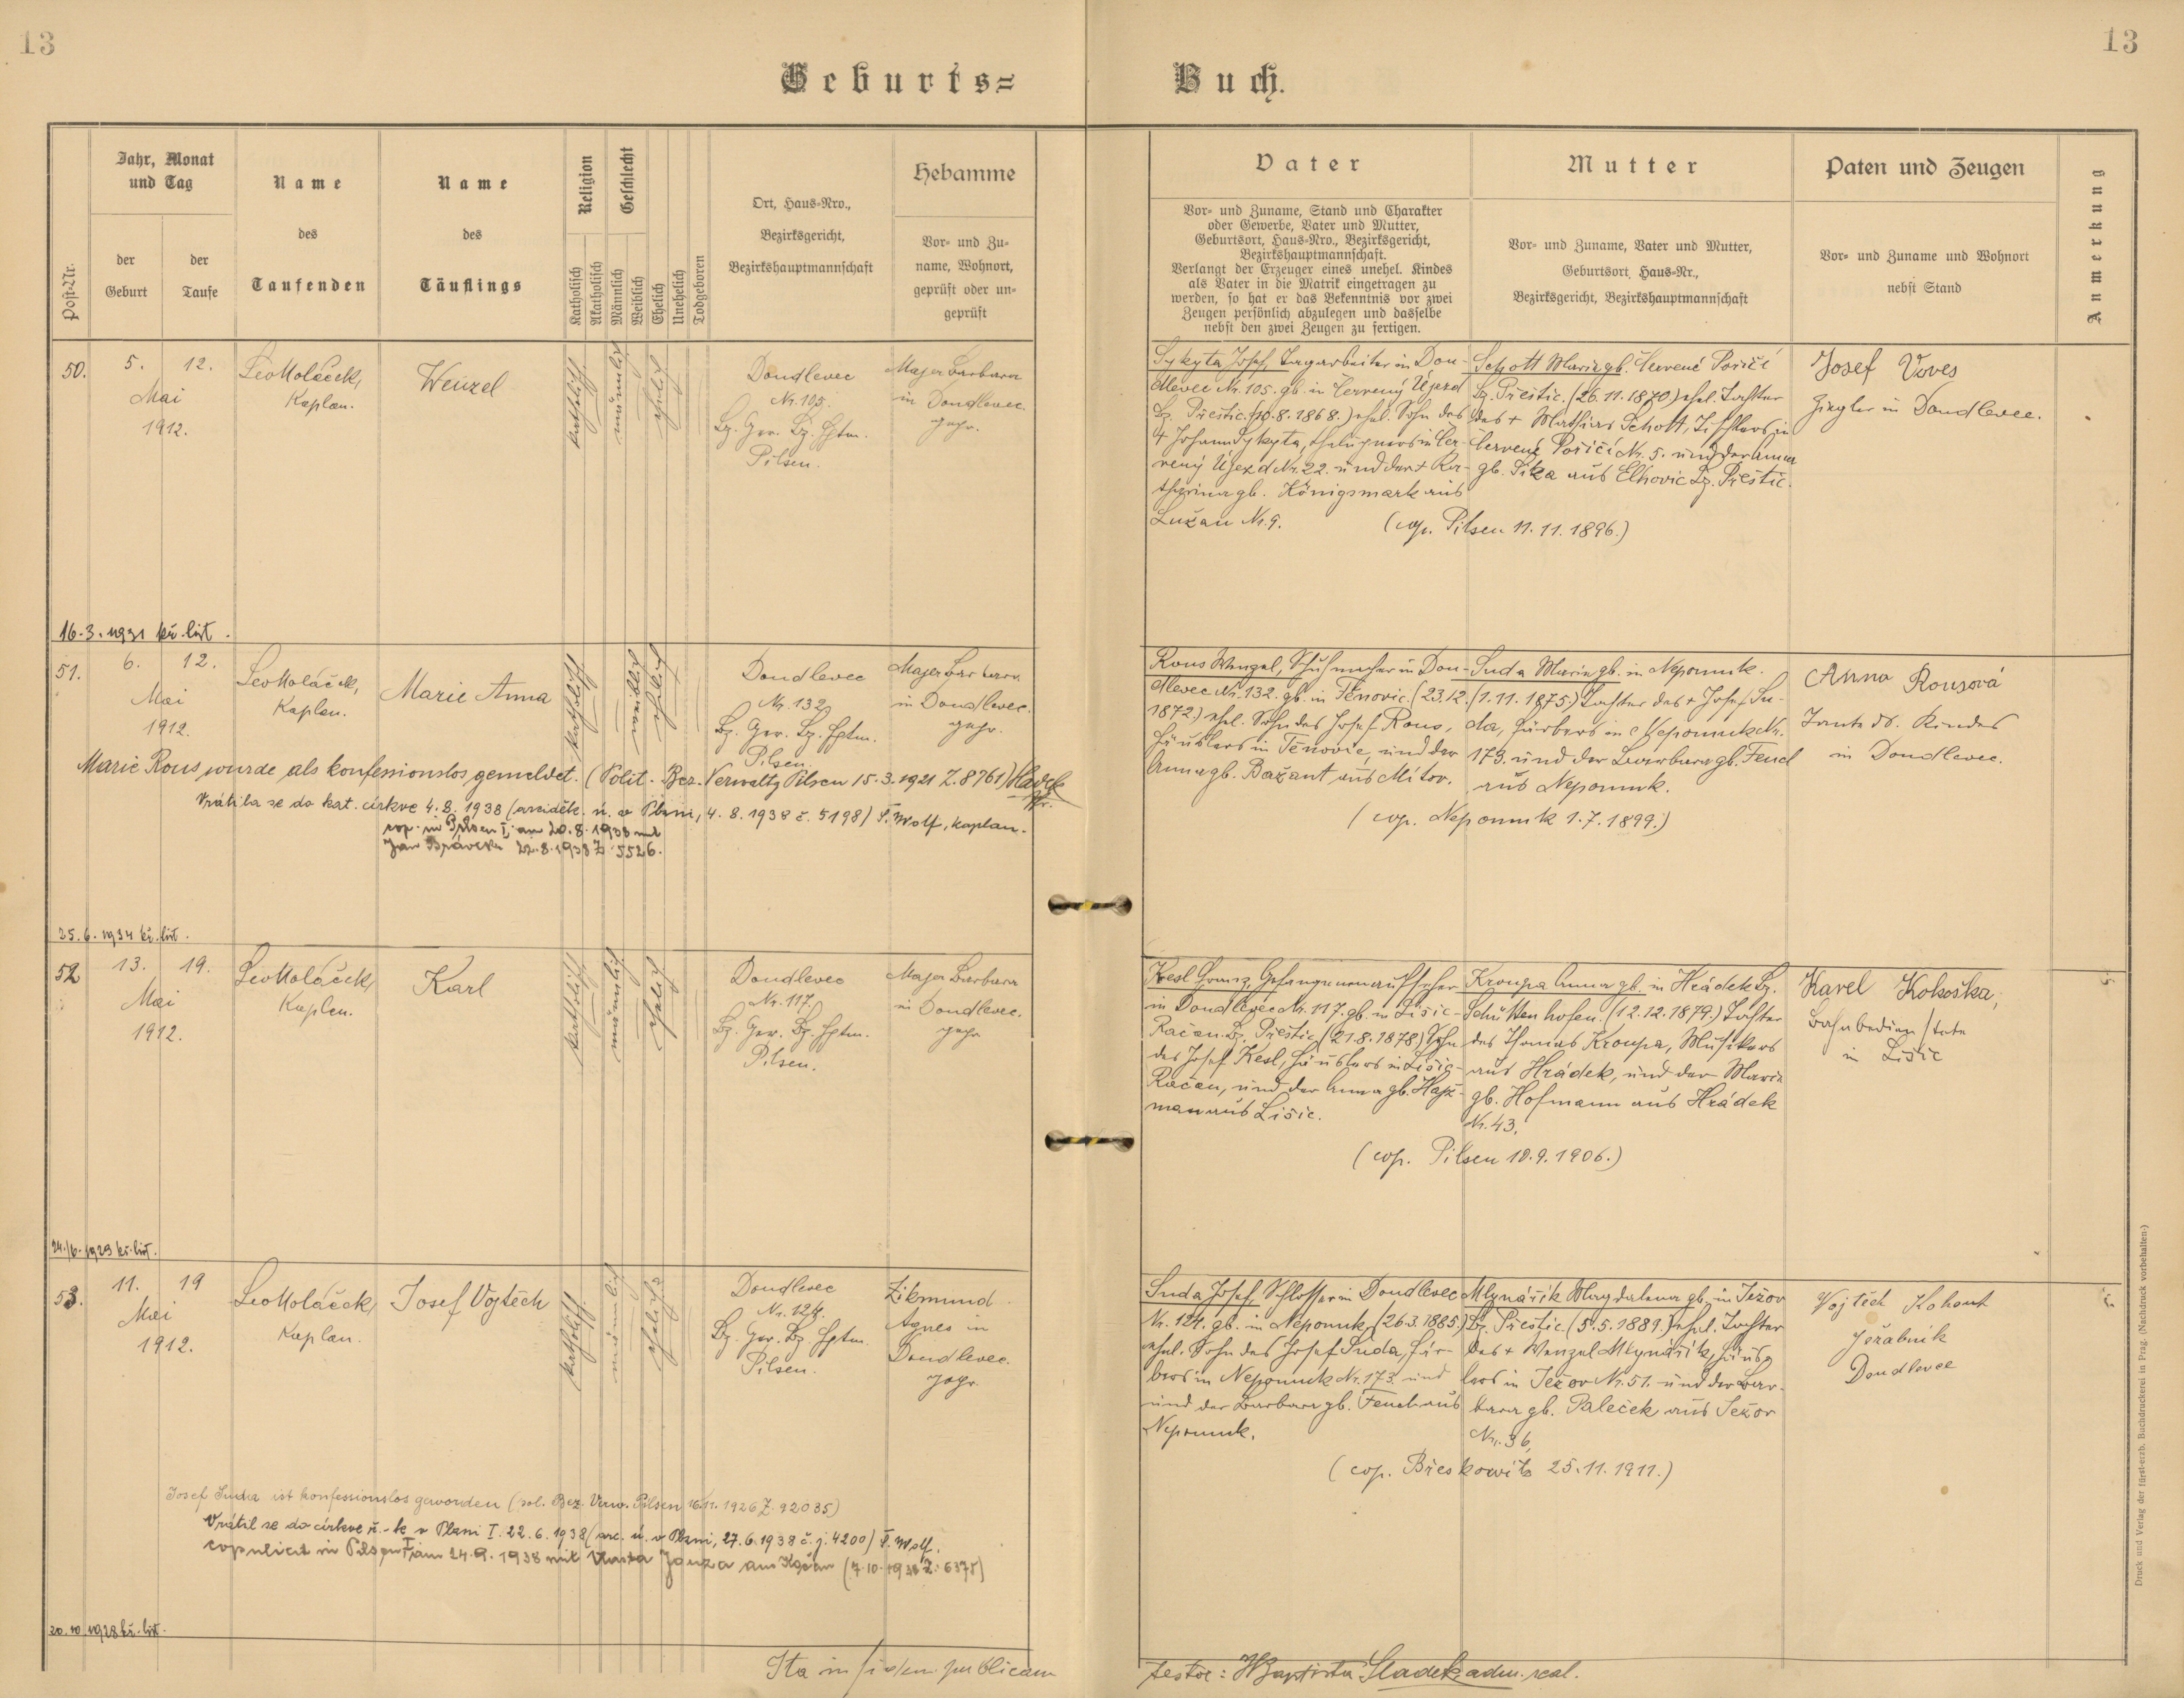 13
13
Geburts=
Buch.
Jahr, Monat
und Tag
der
Geburt
der
Taufe
Post-Nr.
Name
des
Taufenden
Name
des
Täuflings
Religion
Katholisch
Akatholisch
Geschlecht
Männlich
Weiblich
Ehelich
Unehelich
Todgeboren
Ort, Haus-Nro.,
Bezirksgericht,
Bezirkshauptmannschaft
Hebamme
Vor- und Zu-
name, Wohnort,
geprüft oder un-
geprüft
Vater
Vor- und Zuname, Stand und Charakter
oder Gewerbe, Vater und Mutter,
Geburtsort, Haus-Nro., Bezirksgericht,
Bezirkshauptmannschaft.
Verlangt der Erzeuger eines unehel. Kindes
als Vater in die Matrik eingetragen zu
werden, so hat er das Bekenntnis vor zwei
Zeugen persönlich abzulegen und dasselbe
nebst den zwei Zeugen zu fertigen.
Mutter
Vor- und Zuname, Vater und Mutter,
Geburtsort, Haus-Nr.,
Bezirksgericht, Bezirkshauptmannschaft
Paten und Zeugen
Vor- und Zuname und Wohnort
nebst Stand
Anmerkung
50.
5.
12.
Mai
1912.
Leo Koláček,
Kaplan.
Wenzel
katholisch
männlich
ehelich
Doudlevec
Nr. 105.
Bz. Ger. Bz. Hptm.
Pilsen.
Majer Barbara
in Doudlevec.
gepr.
Sykyta Josef, Tagarbeiter in Dou-
dlevec Nr. 105. gb. in Červený Újezd
Bz. Přestic. (10.8.1868.) ehel. Sohn des
† Johann Sykyta, in Čer-
vený Újezd Nr. 22. und der † Ka-
tharina gb. Königsmark aus
Lužan Nr. 9.
Schott Maria gb. Červené Poříčí
Bz. Přestic. (26.11.1870) ehel. Tochter
des † Mathias Schott, Tischlers in
Červené Poříčí Nr. 5. und der Anna
gb. Sika aus Elhovic Bz. Přestic.
(cop. Pilsen 11.11.1896.)
Josef Voves
Ziegler in Doudlevec.
16.3.1931 kř. list.
51.
6.
12.
Mai
1912.
Leo Koláček,
Kaplan.
Marie Anna
katholisch
weiblich
ehelich
Doudlevec
Nr. 132
Bz. Ger. Bz. Hptm.
Pilsen.
Majer Barbara
in Doudlevec.
gepr.
Rous Wenzel, Schuhmacher in Dou-
dlevec Nr. 132. gb. in Těnovic. (23.12.
1872.) ehel. Sohn des Josef Rous,
Häuslers in Těnovic, und der
Anna gb. Bažant aus Mítov.
Suda Maria gb. in Nepomuk.
(1.11.1875.) Tochter des † Josef Su-
da, Färbers in Nepomuk Nr.
173. und der Barbara gb. Fencl
aus Nepomuk.
(cop. Nepomuk 1.7.1899.)
Anna Rousová
Tante ds. Kindes
in Doudlevec.
Marie Rous wurde als konfessionslos gemeldet. (Polit. Bez. Verwaltg Pilsen 15.3.1921 Z. 8761)
Vrátila se do kat. církve 4.8.1938 (arciděk. ú. v Plzni, 4.8.1938 č. 5198) F. Wolf, kaplan.
cop. in Pilsen I, am 20.8.1938 mit
Jan 22.8.1938 Z. 5526.
25.6.1934 kř. list.
52
13.
19.
Mai
1912.
Leo Koláček,
Kaplan.
Karl
katholisch
männlich
ehelich
Doudlevec
Nr. 117.
Bz. Ger. Bz. Hptm.
Pilsen.
Majer Barbara
in Doudlevec.
gepr.
Kesl Franz, Gefangenenaufseher
in Doudlevec Nr. 117. gb. in Lišic-
Račan Bz. Přestic (21.8.1878) Sohn
des Josef Kesl, Häuslers in Lišic-
Račan, und der Anna gb. Haj-
man aus Lišic.
Kroupa Anna gb. in Hrádek Bz.
Schüttenhofen. (12.12.1879.) Tochter
des Thomas Kroupa, Musikers
aus Hrádek, und der Maria
gb. Hofmann aus Hrádek
Nr. 43.
(cop. Pilsen 10.9.1906.)
Karel Kokoška,
Bahnbediensteter
in Lišic
24./6.1929 kř. list.
53.
11.
19
Mai
1912.
Leo Koláček,
Kaplan.
Josef Vojtěch
katholisch
männlich
ehelich
Doudlevec
Nr. 124.
Bz. Ger. Bz. Hptm.
Pilsen.
Zikmund
Agnes in
Doudlevec.
gepr.
Suda Josef, Schlosser in Doudlevec
Nr. 124. gb. in Nepomuk (26.3.1885)
ehel. Sohn des Josef Suda, Fär-
bers in Nepomuk Nr. 173. und
und der Barbara gb. Fencl aus
Nepomuk.
Mlynářík Magdalena gb. in Ježov
Bz. Přestic. (5.5.1889.) ehel. Tochter
des † Wenzel Mlynářík, Häus-
lers in Ježov Nr. 51. und der Bar-
bara gb. Paleček aus Ježov
Nr. 36.
(cop. Břeskowitz 25.11.1911.)
Vojtěch Kohout
jeřabník
Doudlevec
Josef Suda ist konfessionslos geworden (pol. Bez. Verw. Pilsen 16.11.1926 Z. 92035)
Vrátil se do církve ř.-k. v Plzni I. 22.6.1938 (arc. ú. v Plzni, 27.6.1938 č. j. 4200) F. Wolf.
copuliert in Pilsen I, am 24.9.1938 mit Vlasta Janza aus (7.10.1938 Z. 6375)
20.10.1928 kř. list.
Ita in fidem publicam
testor: Baptista Sladek adm. real.
Druck und Verlag der fürst-erzb. Buchdruckerei in Prag. (Nachdruck vorbehalten.)